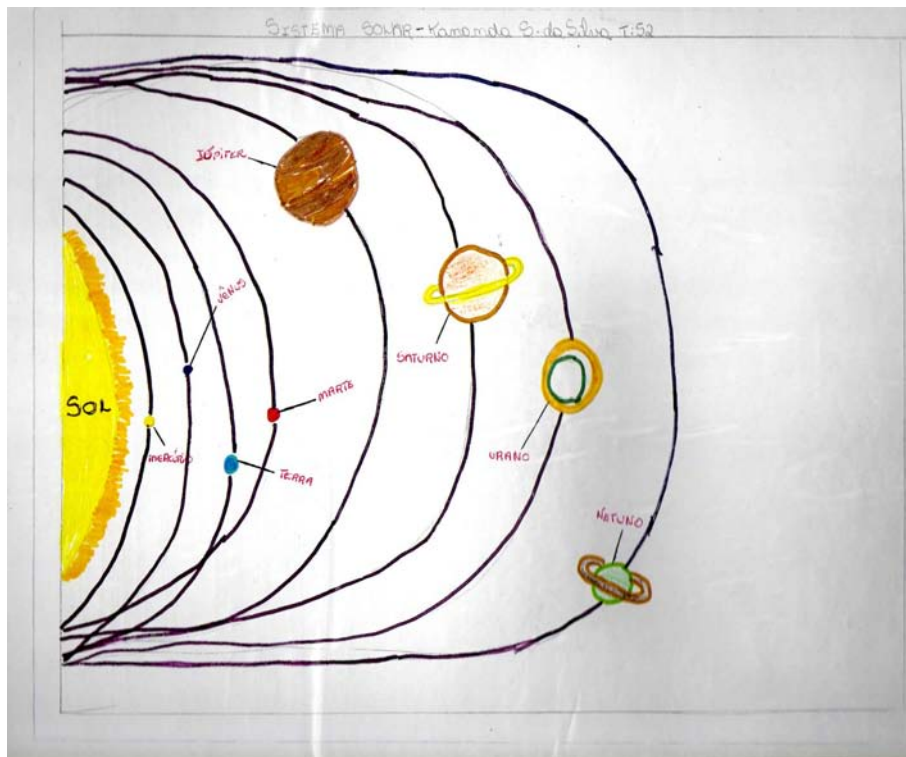 SISTEMA SOLAR - Kananda S. da Silva T:52
JÚPITER
VÊNUS
SATURNO
MARTE
SOL
MERCÚRIO
TERRA
URANO
NETUNO